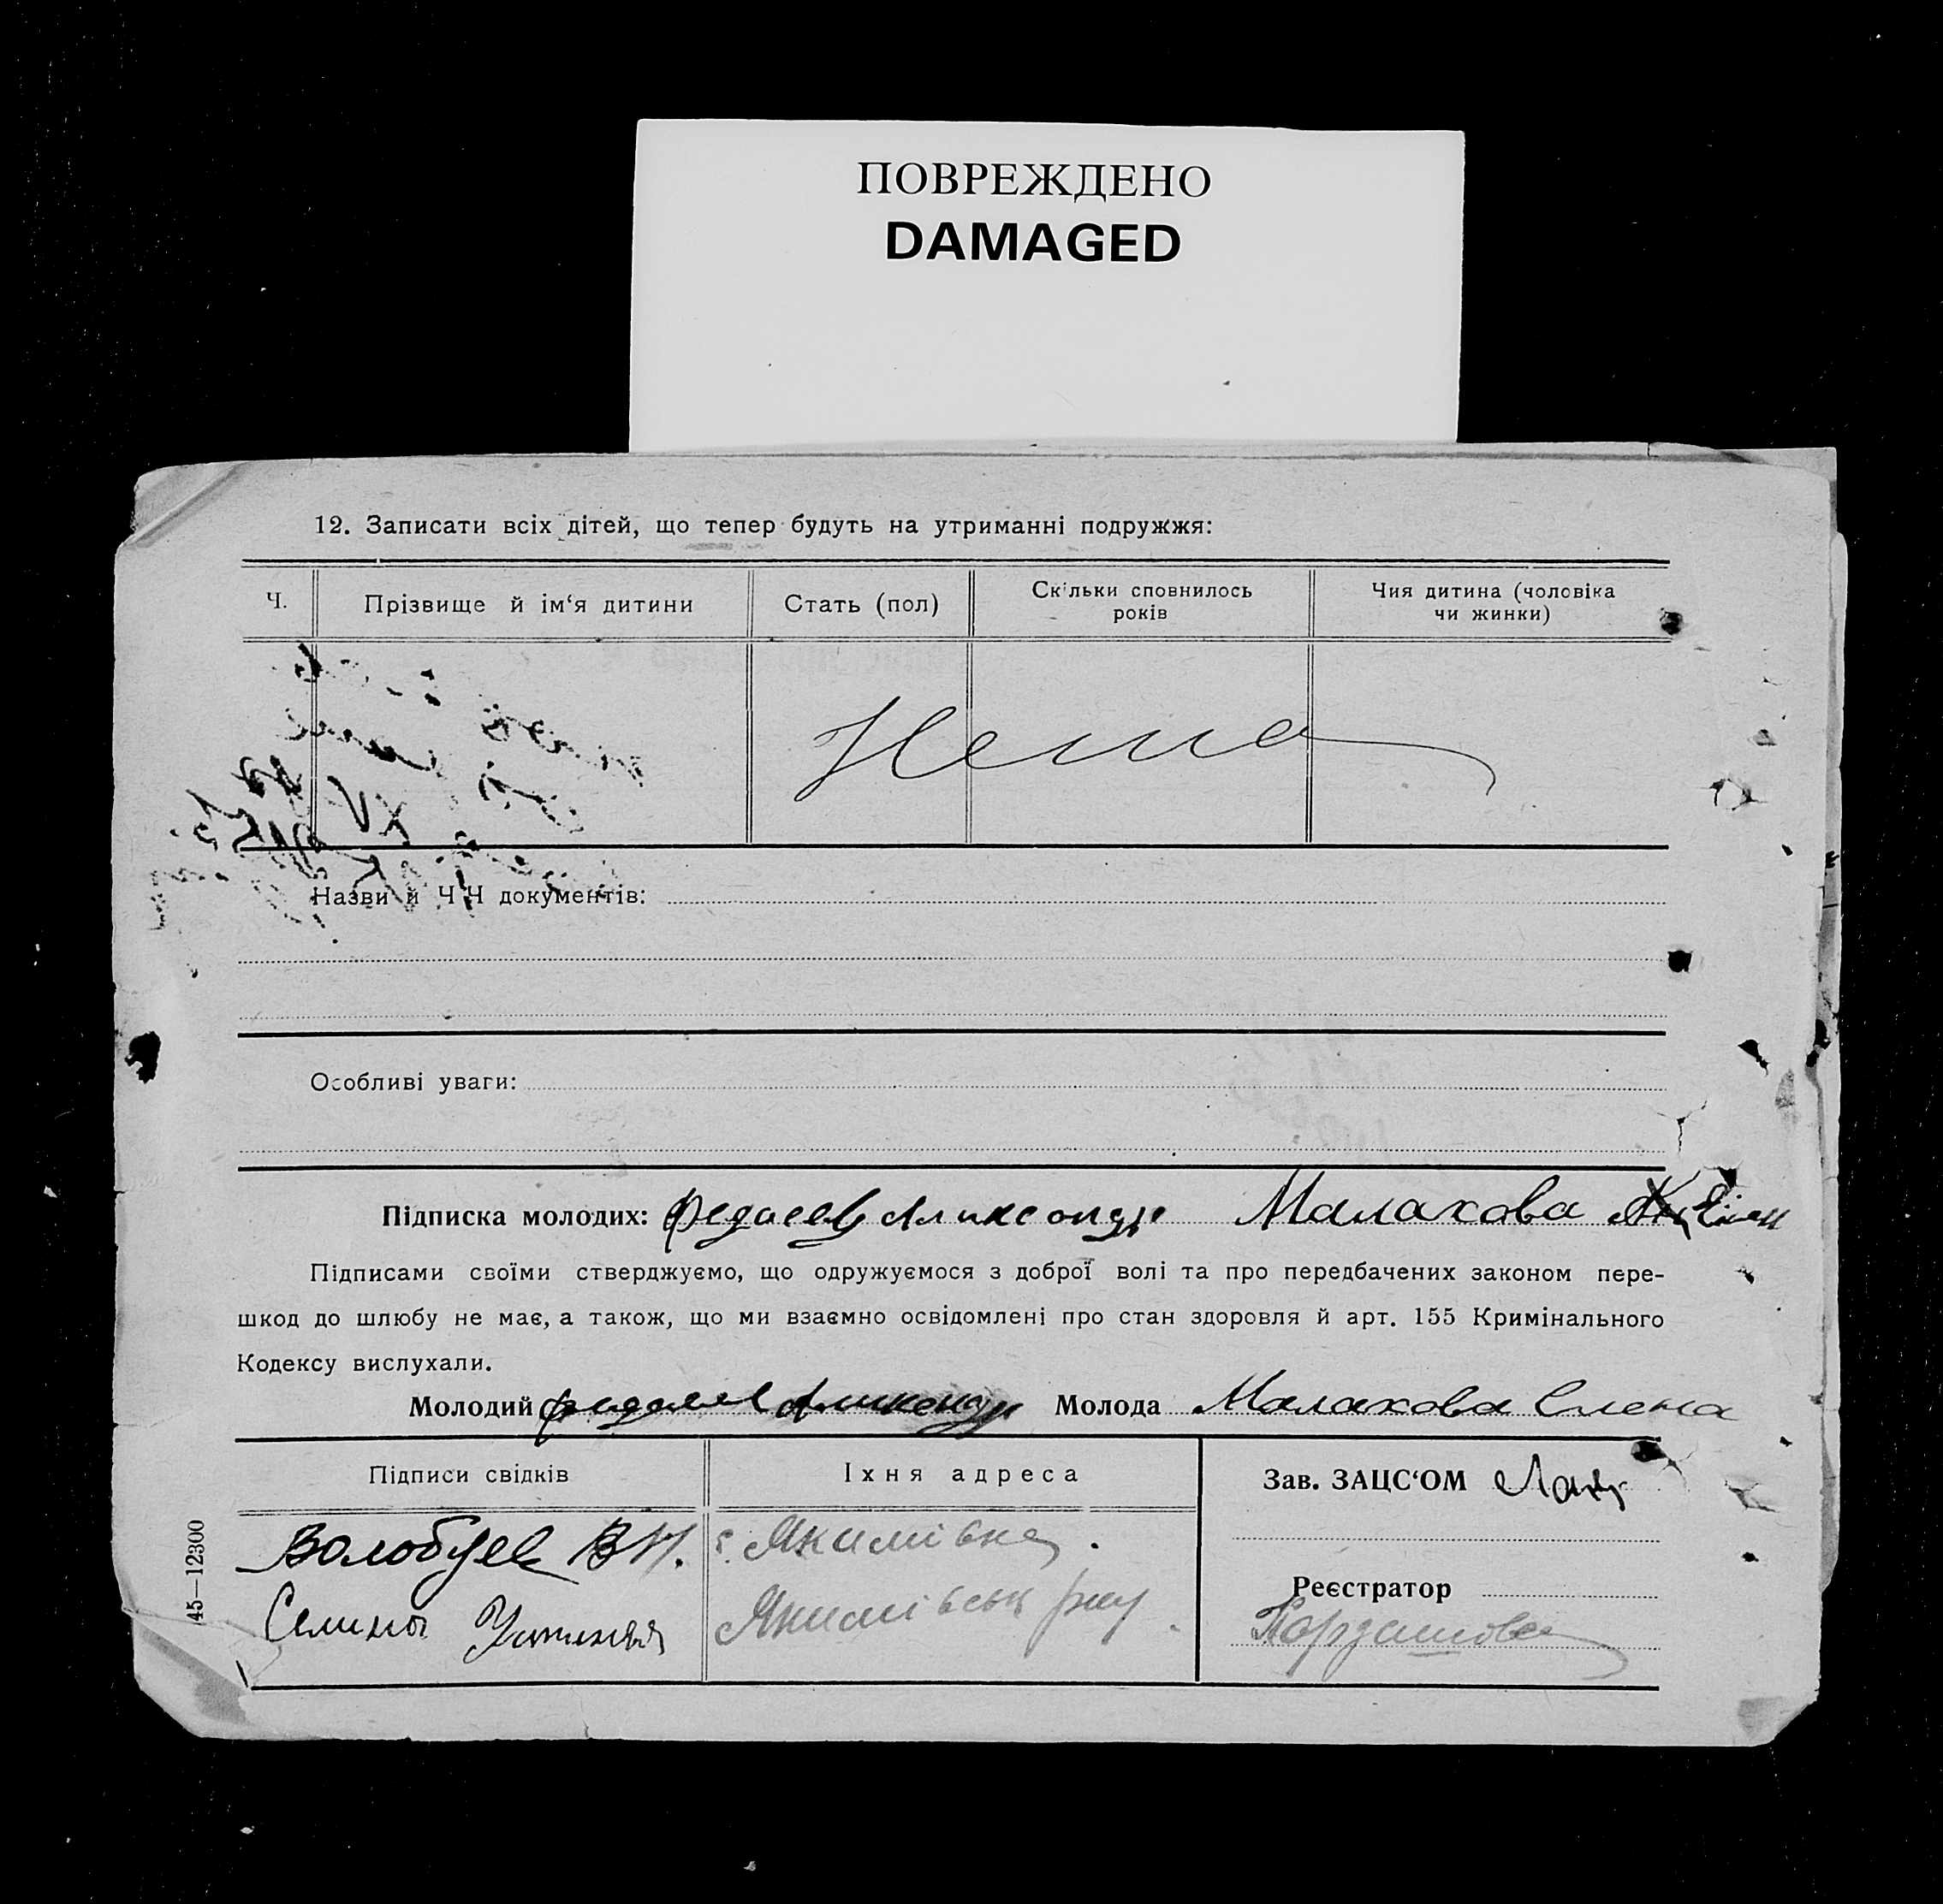 ПОВРЕЖДЕНО
DAMAGED
12. Записати всіх дітей, що тепер будуть на утриманні подружжя:
Ч. Прізвище й ім‘я дитини Стать (пол) Скільки сповнилось років Чия дитина (чоловіка чи жинки)
Нема
Назви й Ч Ч документів:
Особливі уваги:
Підписка молодих: Малахова
Підписами своїми стверджуємо, що одружуємося з доброї волі та про передбачених законом пере-
шкод до шлюбу не має, а також, що ми взаємно освідомлені про стан здоровля й арт. 155 Кримінального
Кодексу вислухали.
Молодий Молода Малахова Елена
Підписи свідків Їхня адреса Зав. ЗАЦС‘ОМ
Волобуев В Н. с. Якимівка.
Реєстратор
Якимівськ
45—12300